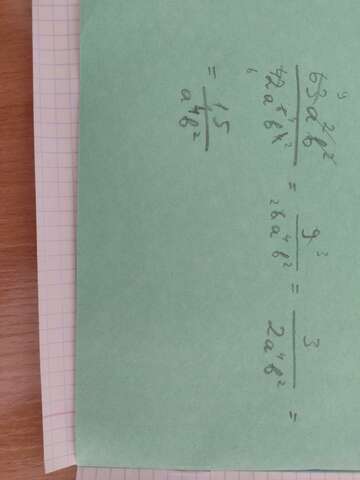 63a²b² / 42a⁵b⁴ = 9 / 6a⁴b² = 3 / 2a⁴b² =
= 1,5 / a⁴b²